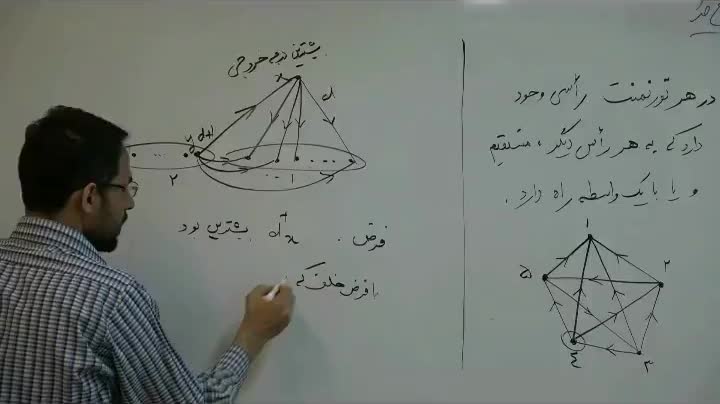 در هر تورنمنت رأسی وجود
دارد که به هر رأس دیگر، مستقیم
و یا با یک واسطه راه دارد.
۱
۲
۳
۴
۵
بیشترین درجه خروجی
x
d
y
d+1
...
...
۲
۱
فرض . d⁺x بیشترین بود
با فرض خلف که